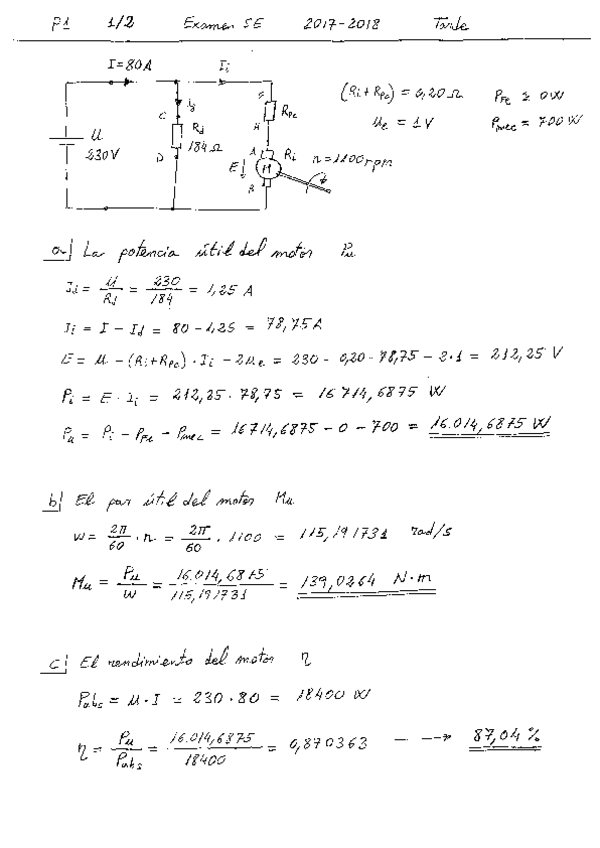 P1 1/2 Examen SE 2017-2018 Tarde
I=80A Ii
(Ri+Rpc) = 0,20 Ω PFe ≃ 0W
ue = 1V Pmec = 700W
U 230V
Id
C
Rd 184 Ω
D
G
Rpc
H
A
Ri
E↓ M n=1100rpm
B
a) La potencia útil del motor Pu
Id = U/Rd = 230/184 = 1,25 A
Ii = I - Id = 80 - 1,25 = 78,75 A
E = U - (Ri+Rpc)·Ii - 2ue = 230 - 0,20·78,75 - 2·1 = 212,25 V
Pi = E·Ii = 212,25·78,75 = 16714,6875 W
Pu = Pi - PFe - Pmec = 16714,6875 - 0 - 700 = 16.014,6875 W
b) El par útil del motor Mu
w = 2π/60 · n = 2π/60 · 1100 = 115,191731 rad/s
Mu = Pu/w = 16.014,6875/115,191731 = 139,0264 N·m
c) El rendimiento del motor η
Pabs = U·I = 230·80 = 18400 W
η = Pu/Pabs = 16.014,6875/18400 = 0,870363 → 87,04 %